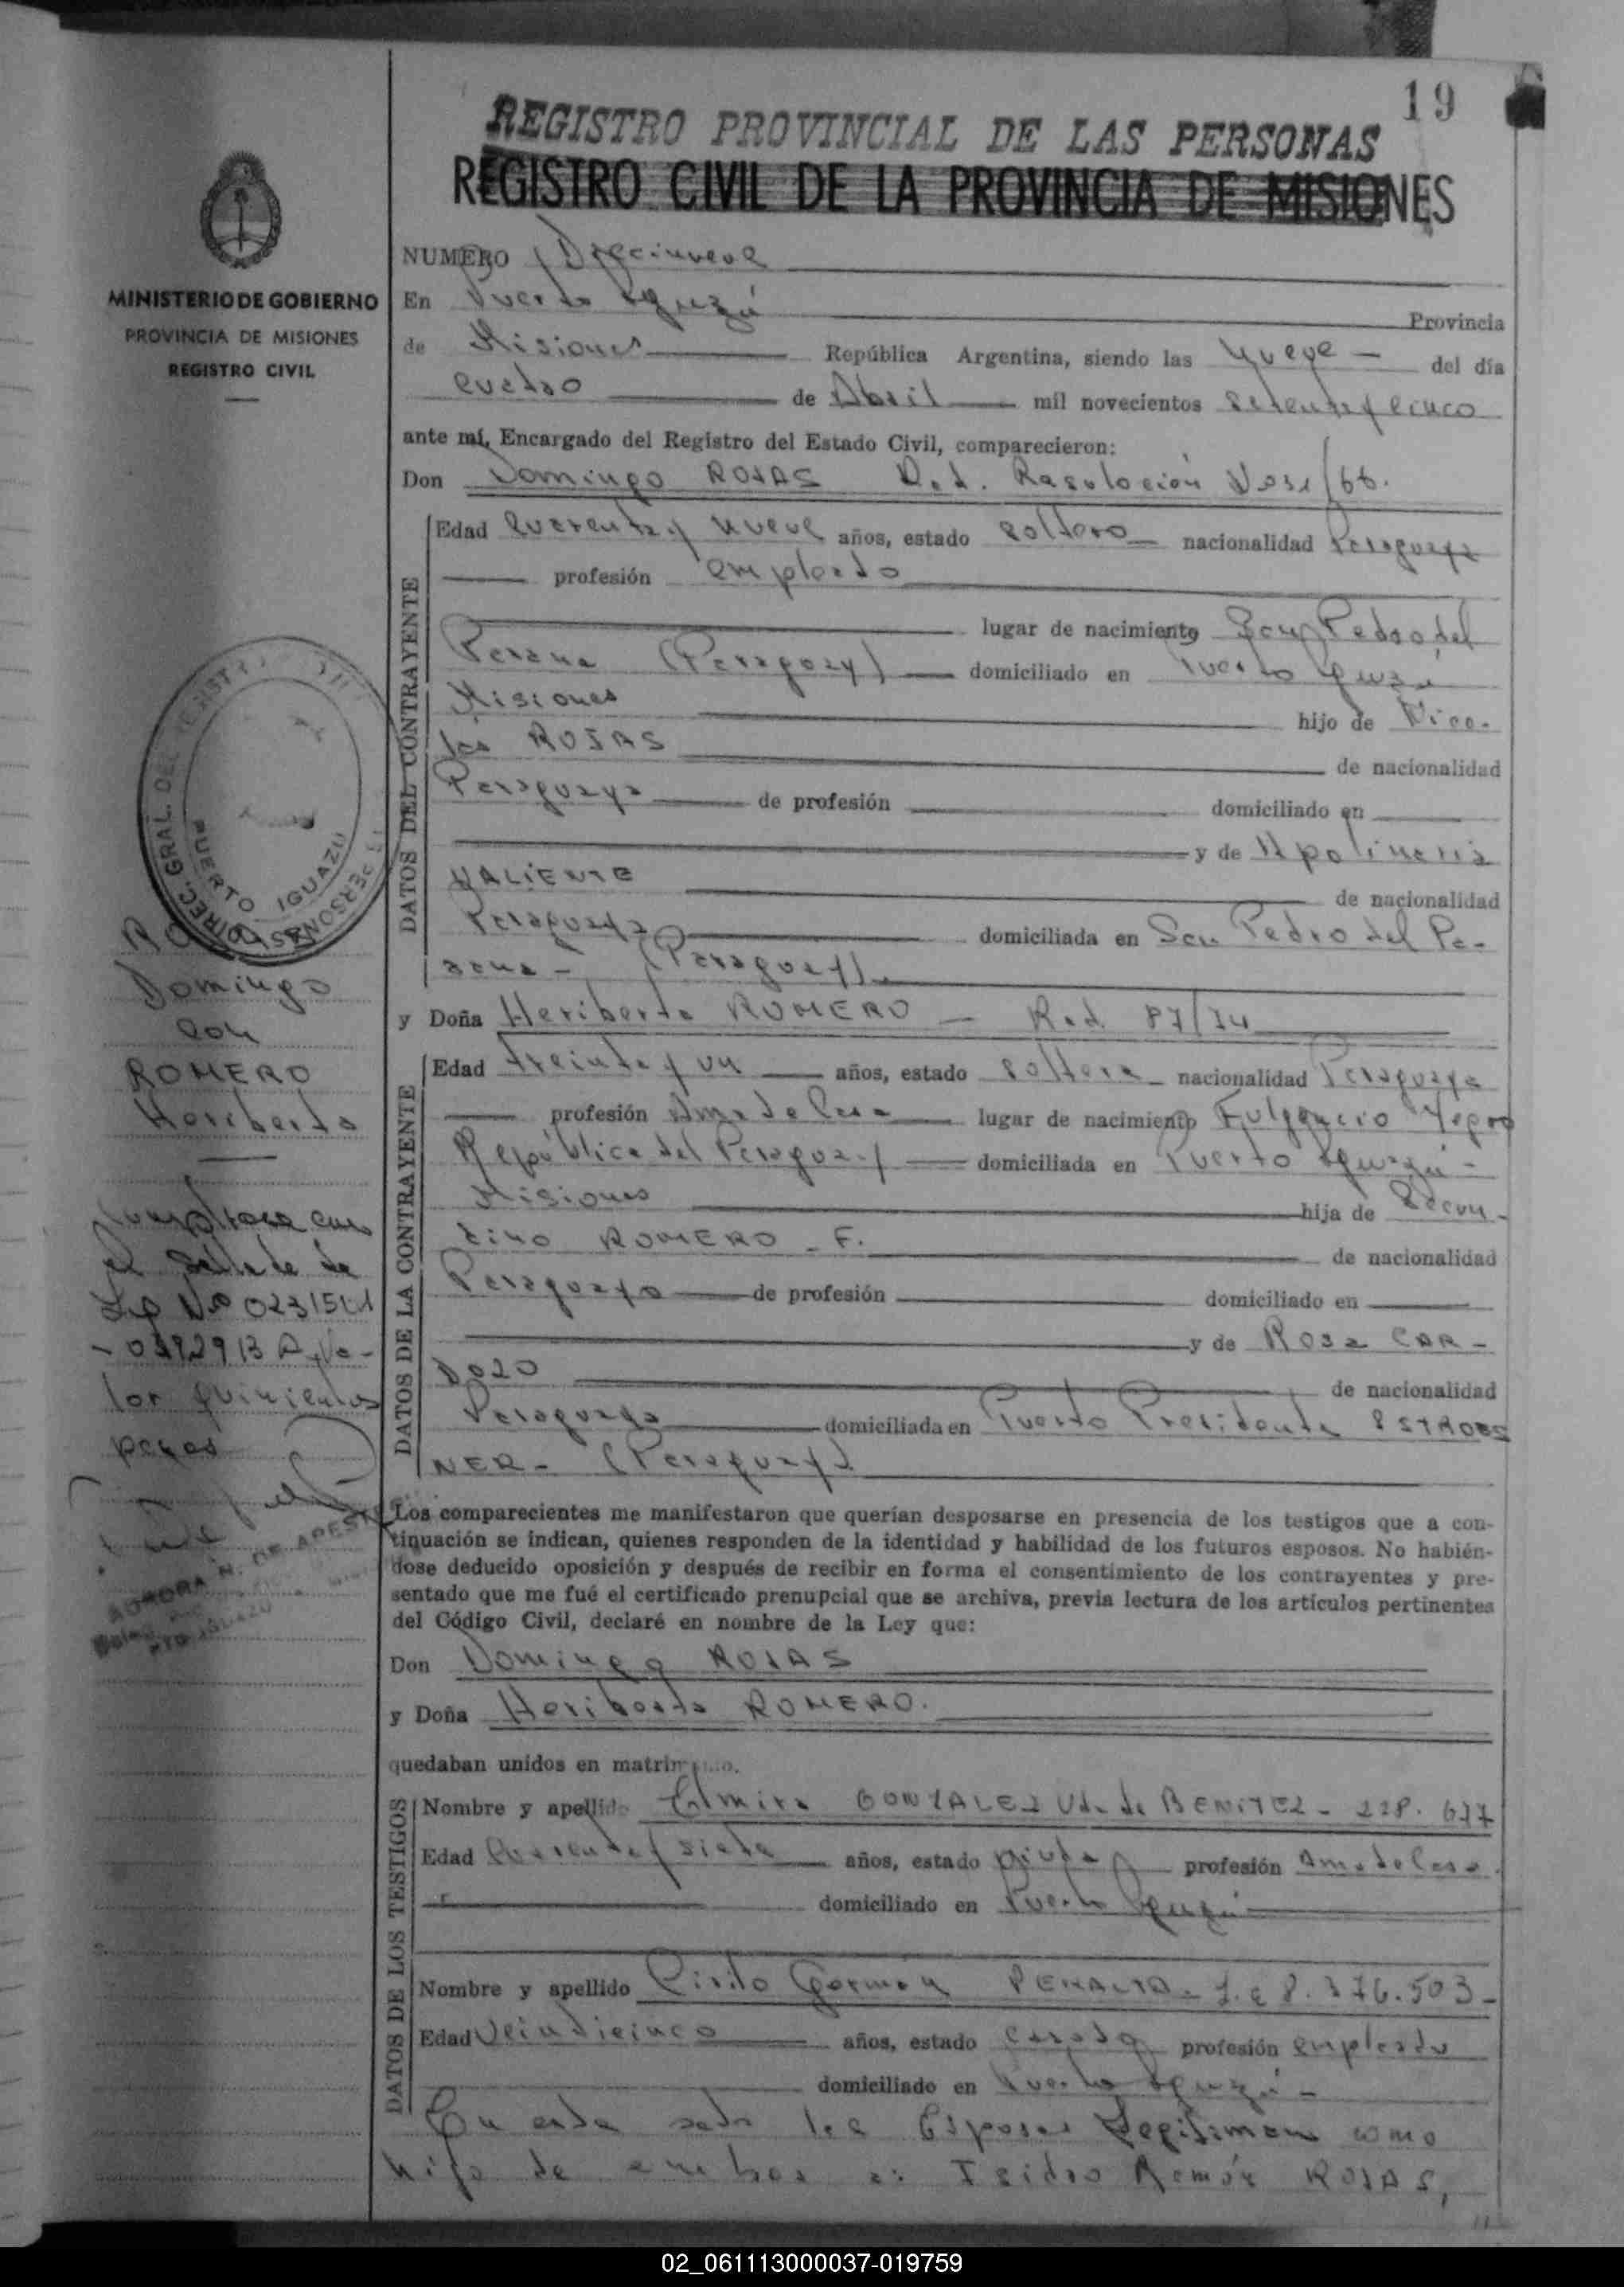 19
REGISTRO PROVINCIAL DE LAS PERSONAS
REGISTRO CIVIL DE LA PROVINCIA DE MISIONES
MINISTERIO DE GOBIERNO
PROVINCIA DE MISIONES
REGISTRO CIVIL
NUMERO Diecinueve
En Puerto Iguazú Provincia
de Misiones República Argentina, siendo las Nueve del día
cuatro de Abril mil novecientos setenta y cinco
ante mí, Encargado del Registro del Estado Civil, comparecieron:
Don Domingo ROJAS Resolución
Edad Cuarenta y nueve años, estado soltero nacionalidad Paraguaya
profesión empleado
lugar de nacimiento San Pedro del
Parana (Paraguay) domiciliado en Puerto Iguazú
Misiones hijo de Nico-
lás ROJAS de nacionalidad
Paraguaya de profesión domiciliado en
y de Apolinaria
VALIENTE de nacionalidad
Paraguaya domiciliada en San Pedro del Pa-
rana - (Paraguay)
DATOS DEL CONTRAYENTE
DIREC. GRAL. DEL REGISTRO
PUERTO IGUAZU
Domingo
con
ROMERO
Heriberta
y Doña Heriberta ROMERO - Rad. 87/74
Edad treinta y un años, estado soltera nacionalidad Paraguaya
profesión Ama de Casa lugar de nacimiento Fulgencio Yegro
República del Paraguay domiciliada en Puerto Iguazú -
Misiones hija de Secun-
dino ROMERO - F. de nacionalidad
Paraguaya de profesión domiciliado en
y de Rosa CAR-
DOZO de nacionalidad
Paraguaya domiciliada en Puerto Presidente ESTROES
NER - (Paraguay)
DATOS DE LA CONTRAYENTE
el sellado de
Ley Nº
lor quinientos
pesos
AURORA N. DE
PTO IGUAZU
Los comparecientes me manifestaron que querían desposarse en presencia de los testigos que a con-
tinuación se indican, quienes responden de la identidad y habilidad de los futuros esposos. No habién-
dose deducido oposición y después de recibir en forma el consentimiento de los contrayentes y pre-
sentado que me fué el certificado prenupcial que se archiva, previa lectura de los artículos pertinentes
del Código Civil, declaré en nombre de la Ley que:
Don Domingo ROJAS
y Doña Heriberta ROMERO.
quedaban unidos en matrimonio.
Nombre y apellido Elmira GONZALEZ Vda de BENITEZ -
Edad Cuarenta y siete años, estado viuda profesión Ama de Casa
domiciliado en Puerto Iguazú
Nombre y apellido Cirilo Germán PERALTA - 8.376.503 -
Edad Veinticinco años, estado casado profesión empleado
domiciliado en Puerto Iguazú -
DATOS DE LOS TESTIGOS
En este acto los Esposos Legitiman como
hijo de ambos a: Isidro Ramón ROJAS,
02_061113000037-019759